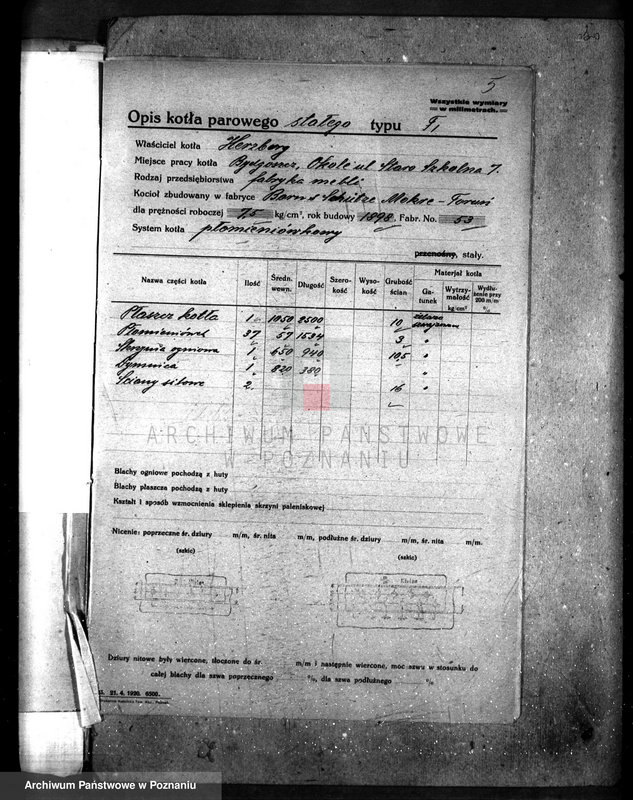 5
Wszystkie wymiary
w milimetrach.
Opis kotła parowego stałego typu F1
Właściciel kotła Herzberg
Miejsce pracy kotła Bydgoszcz, Okole ul Staro Szkolna 7.
Rodzaj przedsiębiorstwa fabryka mebli
Kocioł zbudowany w fabryce Born & Schütze Mokre - Toruń
dla prężności roboczej 7,5 kg/cm², rok budowy 1898, Fabr. No. 53
System kotła płomieniówkowy
przenośny, stały.
Nazwa części kotła Ilość Średn. wewn. Długość Szerokość Wysokość Grubość ścian Materjał kotła
Gatunek Wytrzymałość kg/cm² Wydłużenie przy 200 m/m %
Płaszcz kotła 1 1050 2500 10 żelazo
Płomieniówek 37 57 1534 3 "
Skrzynia ogniowa 1 650 940 10,5 "
Dymnica 1 820 380 "
Ściany sitowe 2 16 "
ARCHIWUM PAŃSTWOWE
W POZNANIU
Blachy ogniowe pochodzą z huty
Blachy płaszcza pochodzą z huty
Kształt i sposób wzmocnienia sklepienia skrzyni paleniskowej
Nicenie: poprzeczne śr. dziury m/m, śr. nita m/m, podłużne śr. dziury m/m, śr. nita m/m.
(szkic) (szkic)
Dziury nitowe były wiercone, tłoczone do śr. m/m i następnie wiercone, moc szwu w stosunku do
całej blachy dla szwa poprzecznego %, dla szwa podłużnego %
21. 4. 1920. 6500.
Archiwum Państwowe w Poznaniu